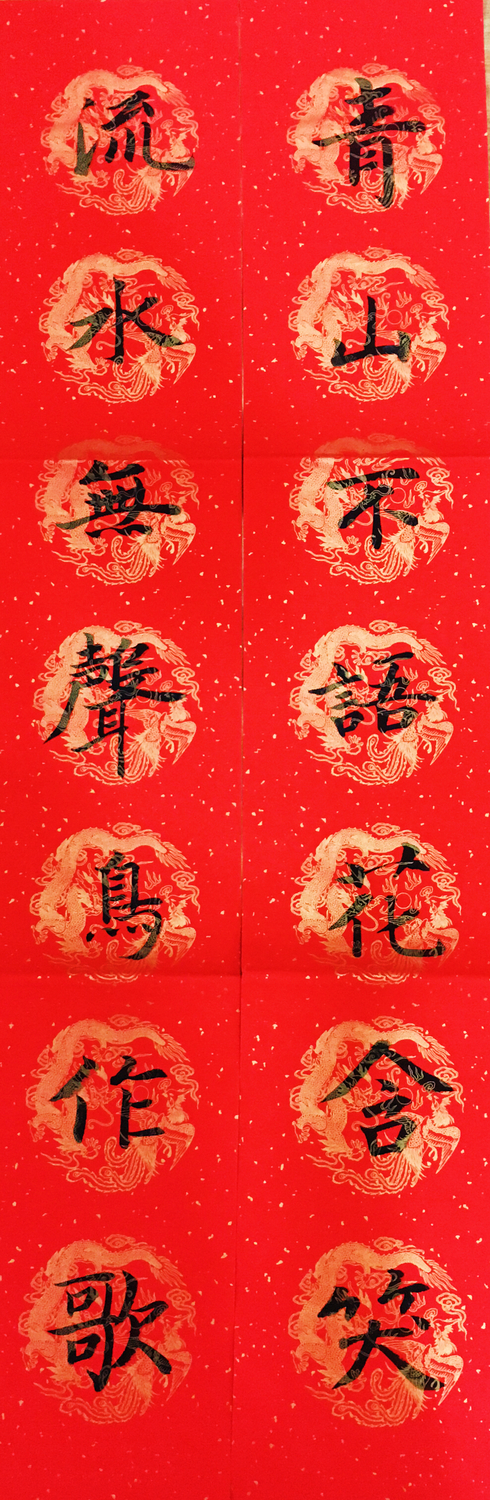 青山不語花含笑
流水無聲鳥作歌